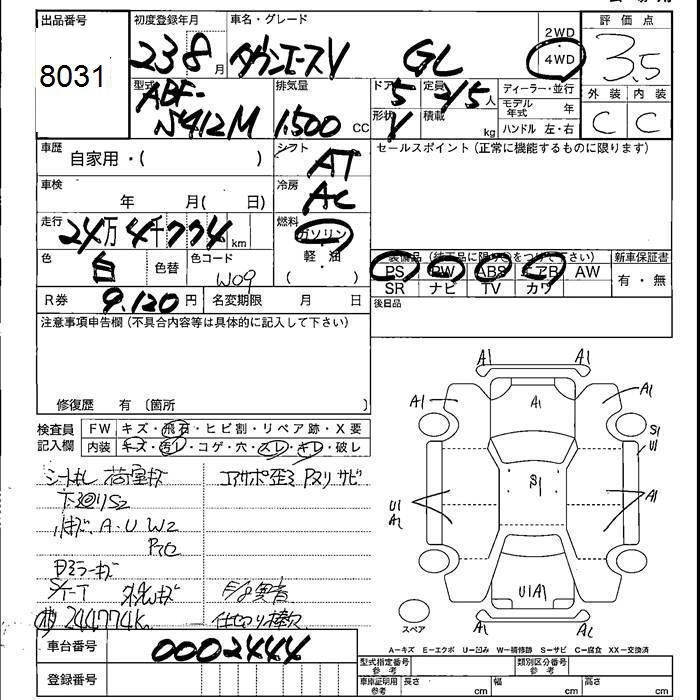 出品番号
8031
初度登録年月
23 8月
車名・グレード
タウンエースV GL
2WD
4WD
評価点
3.5
外装 内装
C C
型式
ABF-
S412M
排気量
1.500 CC
ドア 5
定員 2/5人
形状 V
積載 kg
ディーラー・並行
モデル年式 年
ハンドル 左・右
車歴
自家用・( )
シフト
AT
セールスポイント(正常に機能するものに限ります)
車検
年 月( 日)
冷房
AC
走行
24万4千774km
燃料
ガソリン
軽油
( )
色
白
色替
色コード
W09
装備品(純正品に限り○をつけて下さい)
PS PW ABS エアB AW
SR ナビ TV カワ
新車保証書
有・無
R券 9.120円
名変期限 月 日
後日品
注意事項申告欄(不具合内容等は具体的に記入して下さい)
修復歴 有 〔箇所 〕
検査員
記入欄
FW キズ・飛石・ヒビ割・リペア跡・X要
内装 キズ・汚レ・コゲ・穴・スレ・キレ・破レ
荷室キズ
A・U W2
244774K
A1 A1
A1 A1 A1
S1
U1
S1
U1
A2
A1
U1A1
A1 A1
スペア
A=キズ E=エクボ U=凹み W=補修跡 S=サビ C=腐食 XX=交換済
車台番号 0002444
登録番号
型式指定番号
参考
類別区分番号
参考
車庫証明用
参考
長さ cm 幅 cm 高さ cm